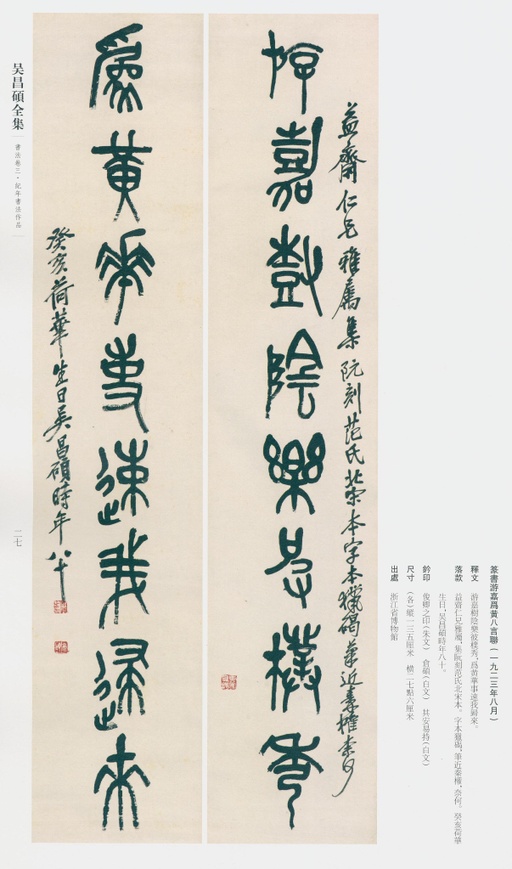 益齋仁兄雅屬集阮刻范氏北宋本字本獵碣筆近秦權奈何
游嘉樹陰樂彼樸秀
爲黄華事速我歸來
癸亥荷華生日吴昌碩時年八十
吴昌碩全集
書法卷三·紀年書法作品
二七
篆書游嘉爲黄八言聯(一九二三年八月)
釋文 游嘉樹陰樂彼樸秀,爲黄華事速我歸來。
落款 益齋仁兄雅屬,集阮刻范氏北宋本,字本獵碣,筆近秦權,奈何。癸亥荷華
生日,吴昌碩時年八十。
鈐印 俊卿之印(朱文) 倉碩(白文) 其安易持(白文)
尺寸 (各)縱一三五厘米 橫二七點六厘米
出處 浙江省博物館